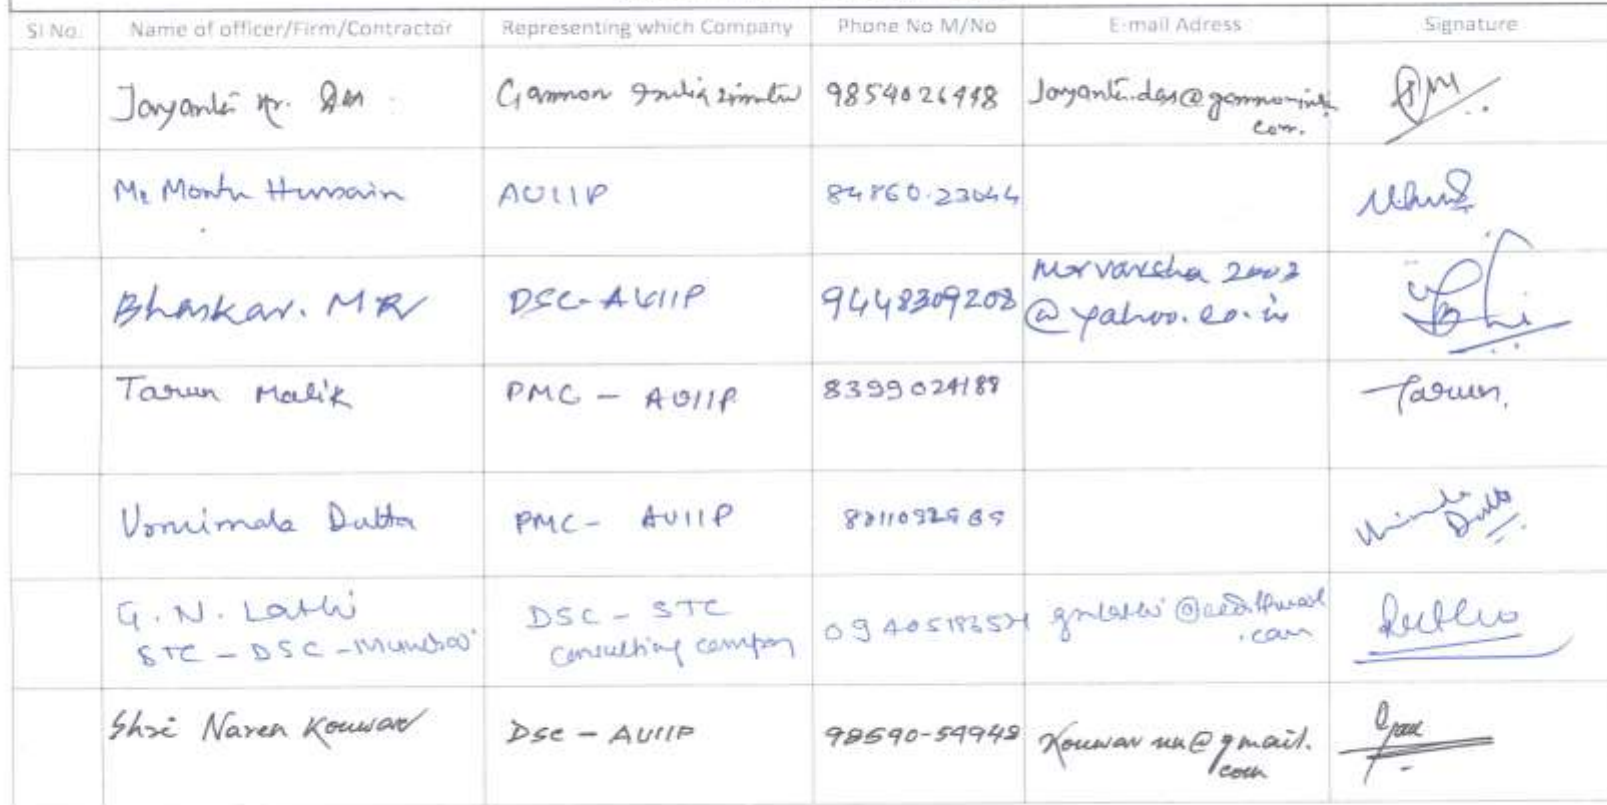 Sl No. Name of officer/Firm/Contractor Representing which Company Phone No M/No E-mail Adress Signature
Jayanta Kr. Das Gammon India Limited 9854026448 Jayanta.das@gammonind.
com.
Md Montu Hussain AUIIP 84860.23044
Bhaskar. MR DSC-AUIIP 9448309208 mrvarsha 2003
@yahoo.co.in
Tarun Malik PMC - AUIIP 8399024188 Tarun.
Dutta PMC - AUIIP
Dutta
G. N. Lathi DSC - STC
.com
STC - DSC - Mumbai consulting company
Shri Naren Konwar DSC - AUIIP 98590-59948 Konwar nn@gmail.
com